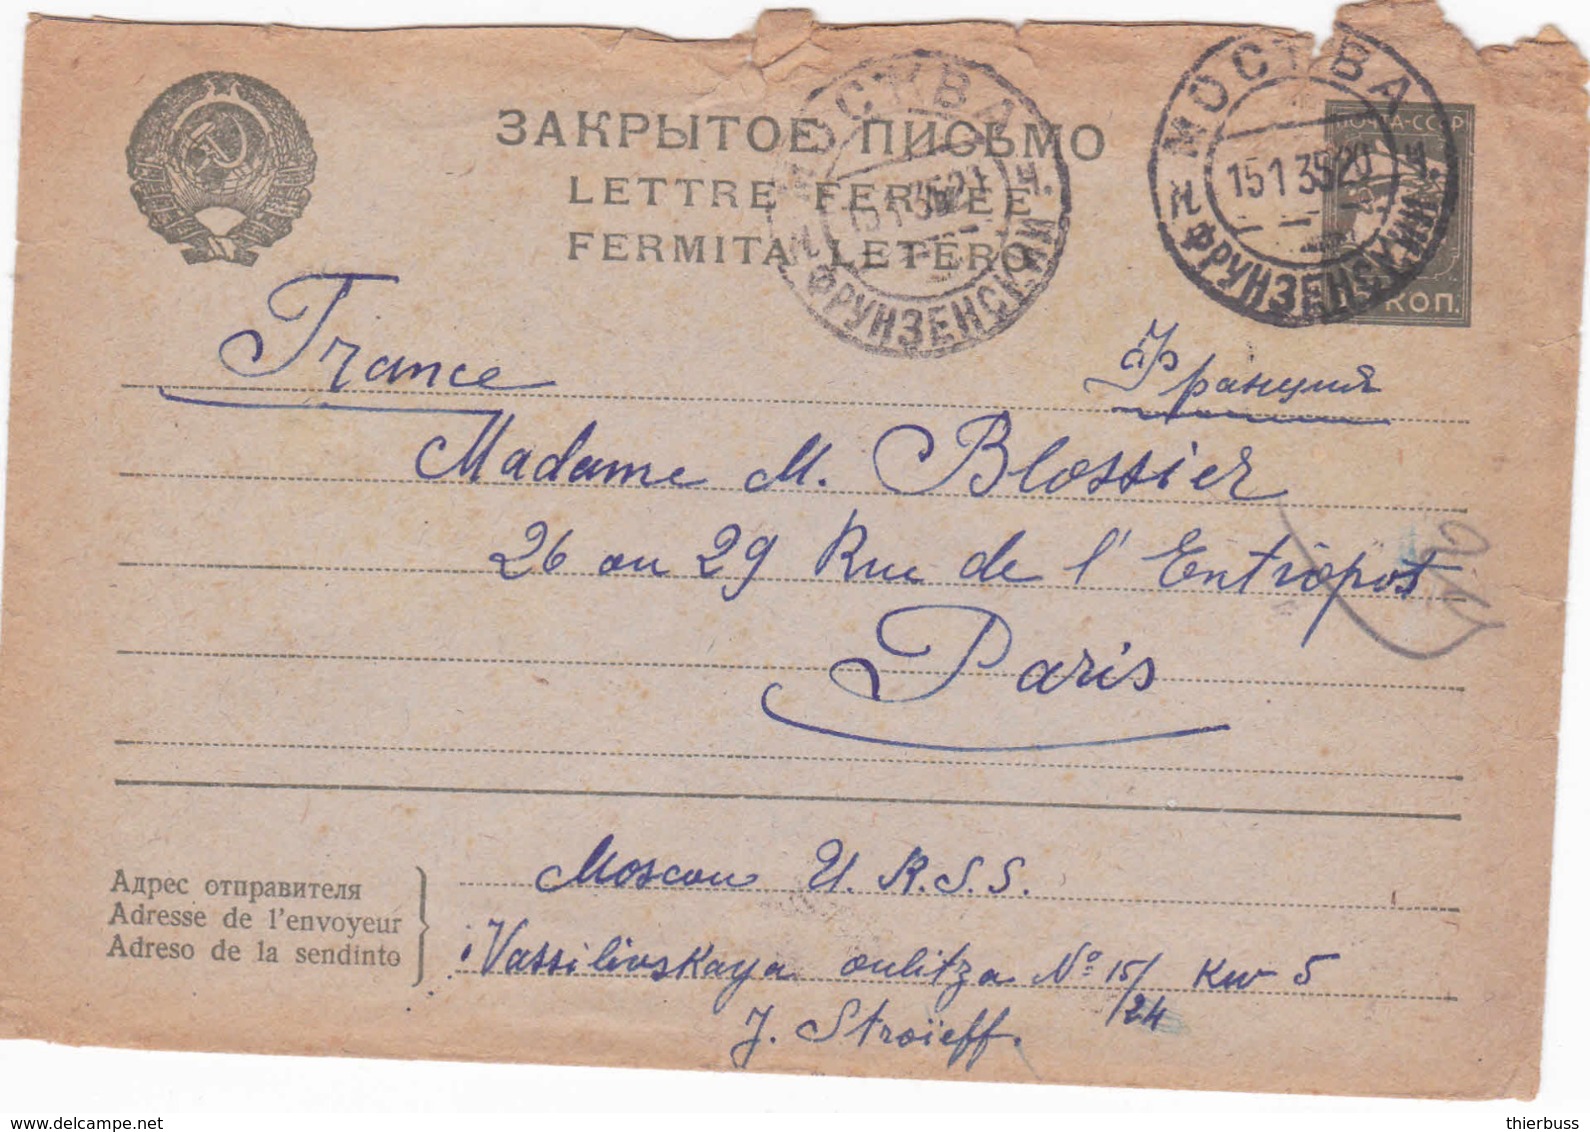 ЗАКРЫТОЕ ПИСЬМО
LETTRE FERMÉE
FERMITA LETERO
МОСКВА
15 1 35 21
ФРУНЗЕНСКИЙ
МОСКВА
15 1 35 20
ФРУНЗЕНСКИЙ
ПОЧТА-СССР
КОП.
France
Франция
Madame M. Blossier
26 ou 29 Rue de l'Entrôpot
Paris
Адрес отправителя
Adresse de l'envoyeur
Adreso de la sendinto
Moscou U.R.S.S.
Vassilivskaya oulitza Nº 15/24 Kw 5
J. Stroïeff.
delcampe.net
thierbuss